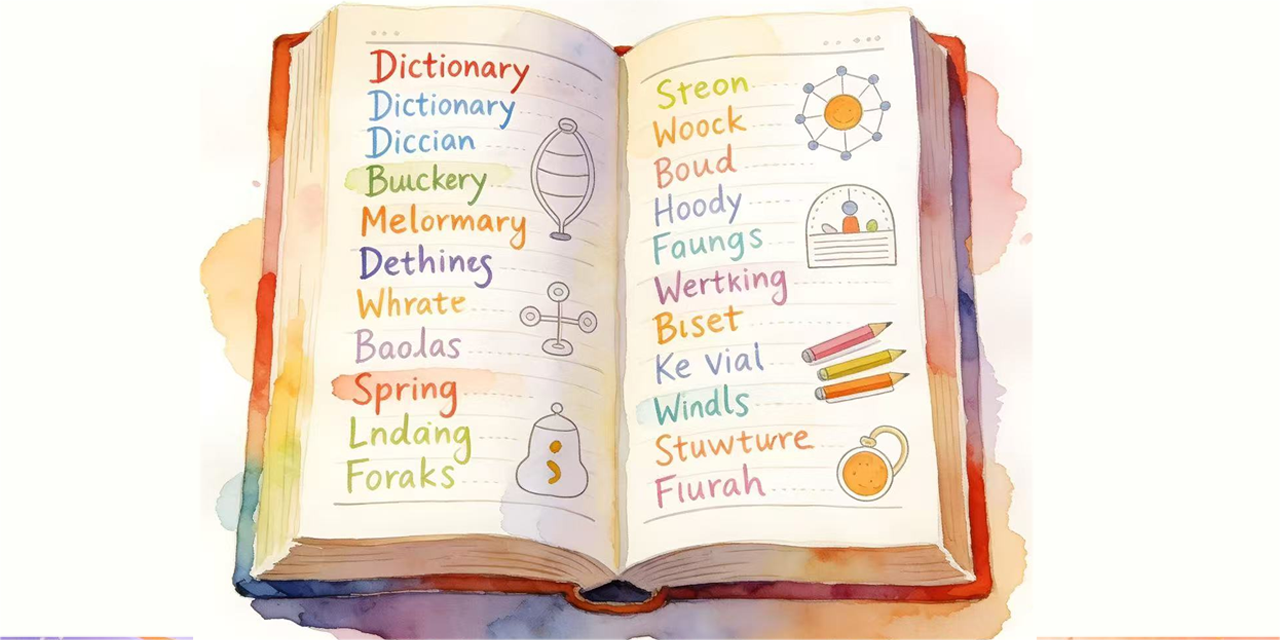 Dictionary
Dictionary
Diccian
Buuckery
Melormary
Dethines
Whrate
Baolas
Spring
Lndang
Foraks
Steon
Woock
Boud
Hoody
Faungs
Wertking
Biset
Ke vial
Windls
Stuwture
Fiurah